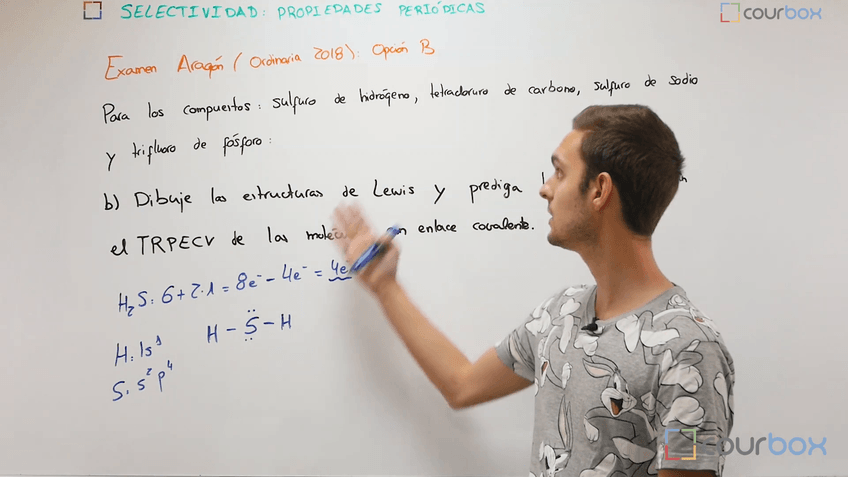 SELECTIVIDAD: PROPIEDADES PERIÓDICAS
courbox
Examen Aragón (Ordinaria 2018): Opción B
Para los compuestos: sulfuro de hidrógeno, tetracloruro de carbono, sulfuro de sodio
y trifluoro de fósforo:
b) Dibuje las estructuras de Lewis y prediga
el TRPECV de las enlace covalente.
H₂S: 6 + 2·1 = 8e⁻ - 4e⁻ = 4e
H - S - H
H: 1s¹
S: s² p⁴
courbox